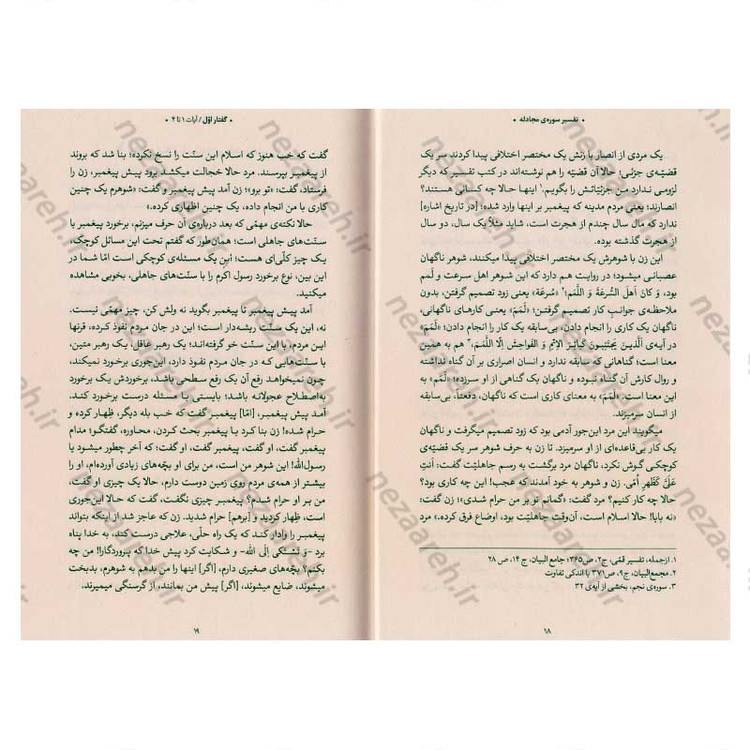 • تفسیر سوره‌ی مجادله •
یک مردی از انصار با زنش یک مختصر اختلافی پیدا کردند سر یک
قضیّه‌ی جزئی؛ حالا آن قضیّه را هم نوشته‌اند در کتب تفسیر که دیگر
لزومی ندارد من جزئیّاتش را بگویم.¹ اینها حالا چه کسانی هستند؟
انصارند؛ یعنی مردم مدینه که پیغمبر بر اینها وارد شده؛ [در تاریخ اشاره]
ندارد که مال سال چندم از هجرت است، شاید مثلاً یک سال، دو سال
از هجرت گذشته بوده.
این زن با شوهرش یک مختصر اختلافی پیدا میکنند، شوهر ناگهان
عصبانی میشود؛ در روایت هم دارد که این شوهر اهل سرعت و لَمَم
بود، وَ کانَ اَهلَ السُّرعَةِ وَ اللَّمَم؛² «سُرعَة» یعنی زود تصمیم گرفتن، بدون
ملاحظه‌ی جوانبِ کار تصمیم گرفتن؛ «لَمَم»، یعنی کارهای ناگهانی،
ناگهان یک کاری را انجام دادن، بی‌سابقه یک کار را انجام دادن؛ «لَمَم»
در آیه‌ی اَلَّذینَ یَجتَنِبونَ کَبائِرَ الاِثمِ وَ الفَواحِشَ اِلَّا اللَّمَم،³ هم به همین
معنا است؛ گناهانی که سابقه ندارد و انسان اصراری بر آن گناه نداشته
و روال کارش آن گناه نبوده و ناگهان یک گناهی از او سرزده؛ «لَمَم» به
این معنا است. «لَمَم»، به معنای کاری است که ناگهان، دفعتاً، بی‌سابقه
از انسان سرمیزند.
میگویند این مرد این‌جور آدمی بود که زود تصمیم میگرفت و ناگهان
یک کار بی‌قاعده‌ای از او سرمیزد. تا زن به حرف شوهر سر یک قضیّه‌ی
کوچکی گوش نکرد، ناگهان مرد برگشت به رسم جاهلیّت گفت: اَنتِ
عَلَیَّ کَظَهرِ اُمّی. زن و شوهر به خود آمدند که عجب! این چه کاری بود؟
حالا چه کار کنیم؟ مرد گفت: «گمانم تو بر من حرام شدی»؛ زن گفت:
«نه بابا! حالا اسلام است، آن‌وقت جاهلیّت بود، اوضاع فرق کرده.» مرد
۱. ازجمله، تفسیر قمّی، ج۲، ص۳۶۵؛ جامع‌البیان، ج ۱۴، ص ۲۸
۲. مجمع‌البیان، ج۹، ص۳۷۱ با اندکی تفاوت
۳. سوره‌ی نجم، بخشی از آیه‌ی ۳۲
۱۸
• گفتار اوّل / آیات ۱ تا ۴ •
گفت که خب هنوز که اسلام این سنّت را نسخ نکرده؛ بنا شد که بروند
از پیغمبر بپرسند. مرد حالا خجالت میکشد برود پیش پیغمبر، زن را
فرستاد، گفت: «تو برو»؛ زن آمد پیش پیغمبر و گفت: «شوهرم یک چنین
کاری با من انجام داده، یک چنین اظهاری کرده.»
حالا نکته‌ی مهمّی که بعد درباره‌ی آن حرف میزنم، برخورد پیغمبر با
سنّت‌های جاهلی است؛ همان‌طور که گفتم تحت این مسائل کوچک،
یک چیز کلّی‌ای هست؛ این یک مسئله‌ی کوچکی است امّا شما در
این بین، نوع برخورد رسول اکرم را با سنّت‌های جاهلی، بخوبی مشاهده
میکنید.
آمد پیش پیغمبر تا پیغمبر بگوید نه ولش کن، چیز مهمّی نیست.
نه، این یک سنّت ریشه‌دار است؛ این در جان مردم نفوذ کرده، قرنها
این مردم، با این سنّت خو گرفته‌اند؛ یک رهبر عاقل، یک رهبر متین،
با سنّت‌هایی که در جان مردم نفوذ دارد، این‌جوری برخورد نمیکند،
چون نمیخواهد رفع آن یک رفع سطحی باشد، برخوردش یک برخورد
به‌اصطلاح عجولانه باشد؛ بایستی با مسئله درست برخورد کند.
آمد پیش پیغمبر، [امّا] پیغمبر گفت که خب بله دیگر، ظِهار کرده و
حرام شده! زن بنا کرد با پیغمبر بحث کردن، محاوره، گفتگو؛ مدام
پیغمبر گفت، او گفت؛ پیغمبر گفت، او گفت؛ که آخر چطور میشود یا
رسول‌الله! این شوهر من است، من برای او بچّه‌های زیادی آورده‌ام، او را
بیشتر از همه‌ی مردم روی زمین دوست دارم، حالا یک چیزی او گفت،
من بر او حرام شدم؟ پیغمبر چیزی نگفت، گفت که حالا این‌جوری
است، ظِهار کردید و [برهم] حرام شدید. زن که عاجز شد از اینکه بتواند
پیغمبر را وادار کند که یک راه حلّی، علاجی درست کند، به خدا پناه
برد -وَ تَشتَکی اِلَی الله- و شکایت کرد پیش خدا که پروردگارا! من چه
بکنم؟ بچّه‌های صغیری دارم، [اگر] اینها را من بدهم به شوهرم، بدبخت
میشوند، ضایع میشوند، [اگر] پیش من بمانند، از گرسنگی میمیرند.
۱۹
nezaareh.ir